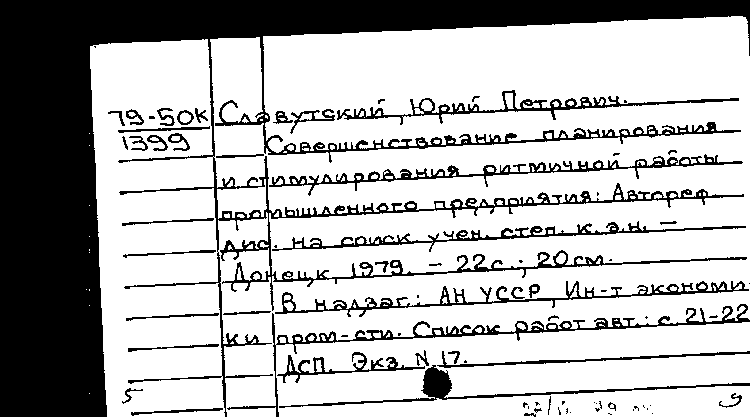 79-50к Славутский, Юрий Петрович.
1399 Совершенствование планирования
и стимулирования ритмичной работы
промышленного предприятия: Автореф.
дис. на соиск. учен. степ. к.э.н. –
Донецк, 1979. – 22с.; 20см.
В надзаг.: АН УССР, Ин-т экономи
ки пром-сти. Список работ авт.: с. 21-22
ДСП. Экз. N 17.
5